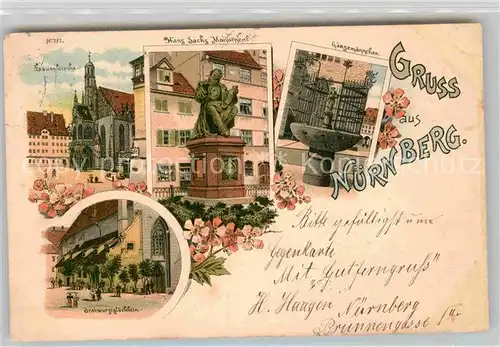 Hans Sachs Monument
Gänsemännchen
Frauenkirche
GRUSS
aus
NÜRNBERG.
Bratwurstglöcklein
Bitte gefälligst um
Gegenkarte
Mit Gutferngruß"
H. Haagen Nürnberg
Brunnengasse